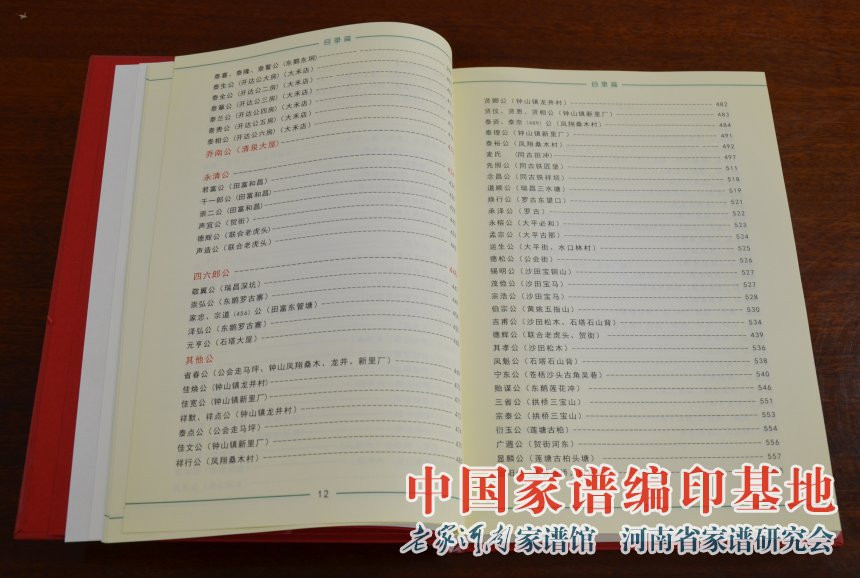 目录篇
泰嘉、泰隆、泰鳌公（东鹅东垌）
泰生公（开达公大房）（大禾店）
泰全公（开达公二房）（大禾店）
泰章公（开达公三房）（大禾店）
泰兰公（开达公四房）（大禾店）
泰贵公（开达公五房）（大禾店）
泰相公（开达公六房）（大禾店）
乔南公（清泉大屋）
永清公
君富公（田富和昌）
千一郎公（田富和昌）
崇二公（田富和昌）
声宣公（贺街）
德辉公（联合老虎头）
声造公（联合老虎头）
四六郎公
敬翼公（瑞昌深坑）
崇弘公（东鹅罗古寨）
家忠、宗道（456）公（田富东管塘）
泽弘公（东鹅罗古寨）
元亨公（石塔大屋）
其他公
省春公（公会走马坪、钟山凤翔桑木、龙井、新里厂）
佳焕公（钟山镇龙井村）
佳宽公（钟山镇新里厂）
祥默、祥点公（钟山镇龙井村）
泰点公（公会走马坪）
佳文公（钟山镇新里厂）
祥行公（凤翔桑木村）
12
目录篇
贤卿公（钟山镇龙井村） 482
贤仪、贤恩、贤相公（钟山镇新里厂） 483
泰资、泰奈（489）公（凤翔桑木村） 484
泰理公（钟山镇新里厂） 491
泰裕公（凤翔桑木村） 492
麦氏 （同古田冲） 497
先照公（同古铁匠堡） 511
念昌公（同古铁祥坝） 518
道顺公（瑞昌三水塘） 519
焕行公（罗古东望口） 521
承泽公（罗古） 522
永榕公（大平必和） 523
孟宗公（大平古那） 524
运生公（大平街、水口林村） 525
德松公（公会街） 526
锡明公（沙田宝铜山） 527
茂俭公（沙田宝马） 527
宗浩公（沙田宝马） 528
伯宗公（黄姚五指山） 530
吉甫公（沙田松木、石塔石山背） 534
德辉公（联合老虎头、贺街） 439
其孝公（沙田松木） 536
凤魁公（石塔石山背） 538
宁东公（苍梧沙头古角吴巷） 540
贻谋公（东鹅莲花冲） 546
三省公（拱桥三宝山） 551
宗泰公（拱桥三宝山） 553
衍玉公（莲塘古柏） 554
广週公（贺街河东） 556
显麟公（莲塘古柏头塘） 557
中国家谱编印基地
老家河南家谱馆 河南省家谱研究会